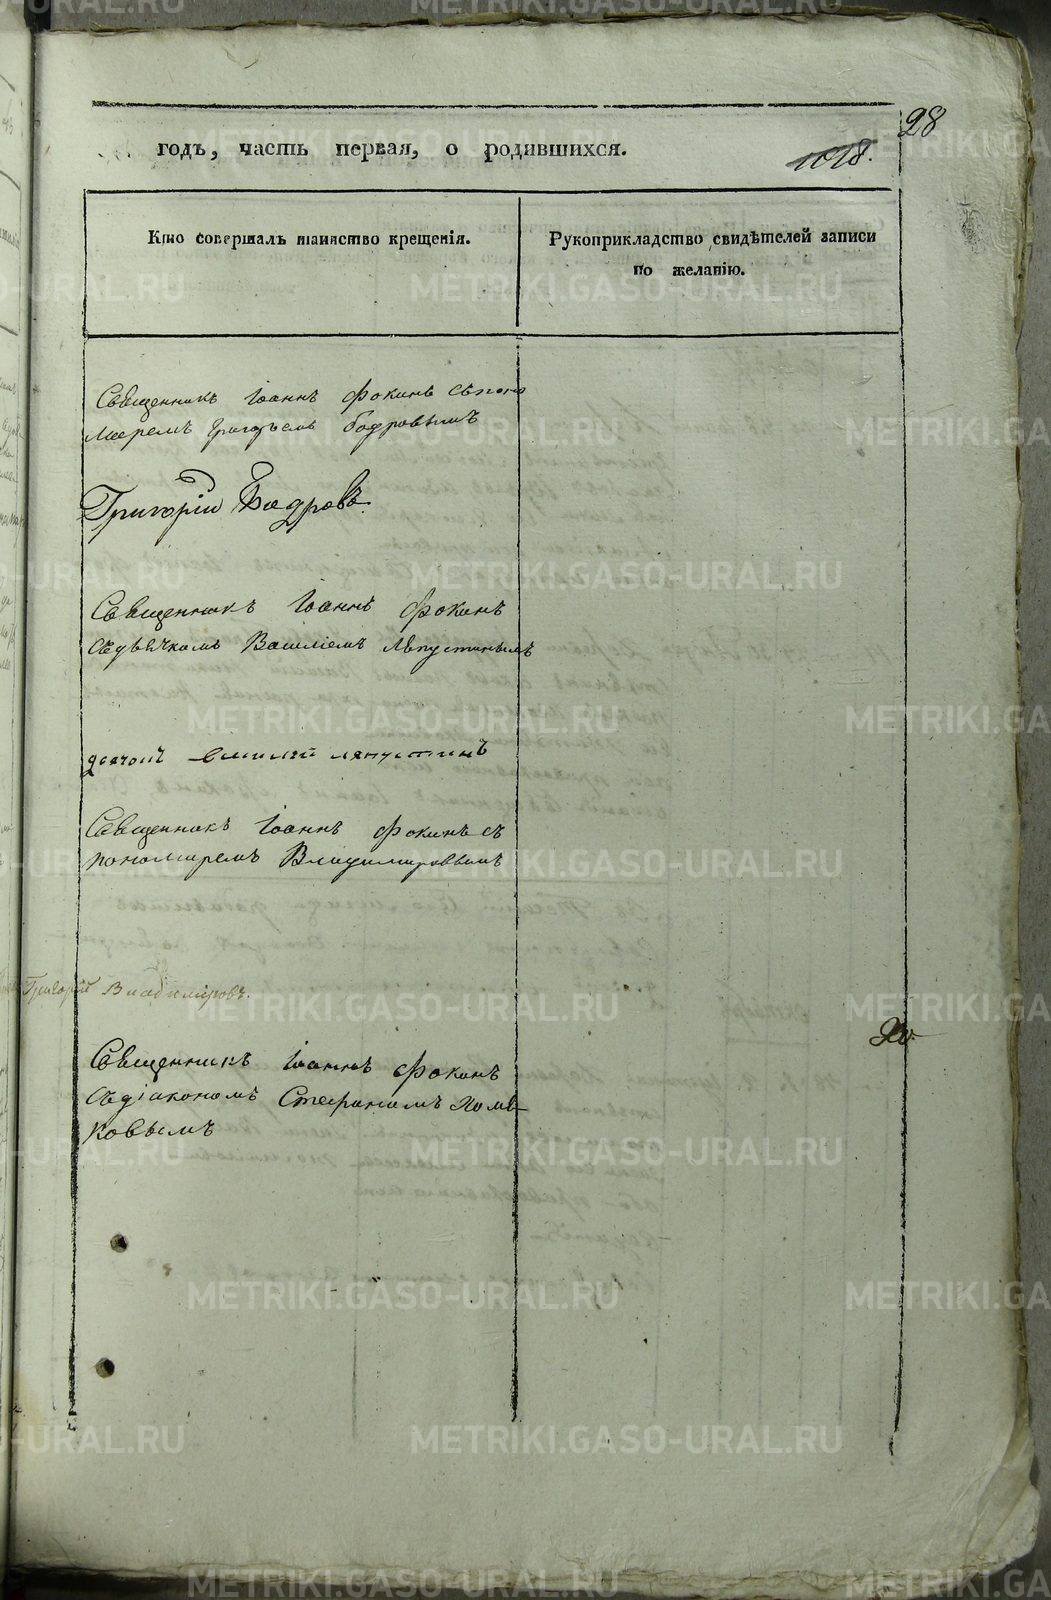 28
годъ, часть первая, о родившихся.
1018.
Кто совершалъ таинство крещенія.
Рукоприкладство свидѣтелей записи
по желанію.
Священникъ Іоаннъ Фокинъ съ поно
маремъ Григорьемъ Бодровымъ
Григорій Бодровъ.
Священникъ Іоаннъ Фокинъ
съ дьячкомъ Василіемъ Ляпустинымъ
дьячокъ Василей Ляпустинъ
Священникъ Іоаннъ Фокинъ съ
пономаремъ Владимировымъ
Григорій Владимировъ.
Священникъ Іоаннъ Фокинъ
съ діакономъ Стефаномъ Хомя-
ковымъ
METRIKI.GASO-URAL.RU